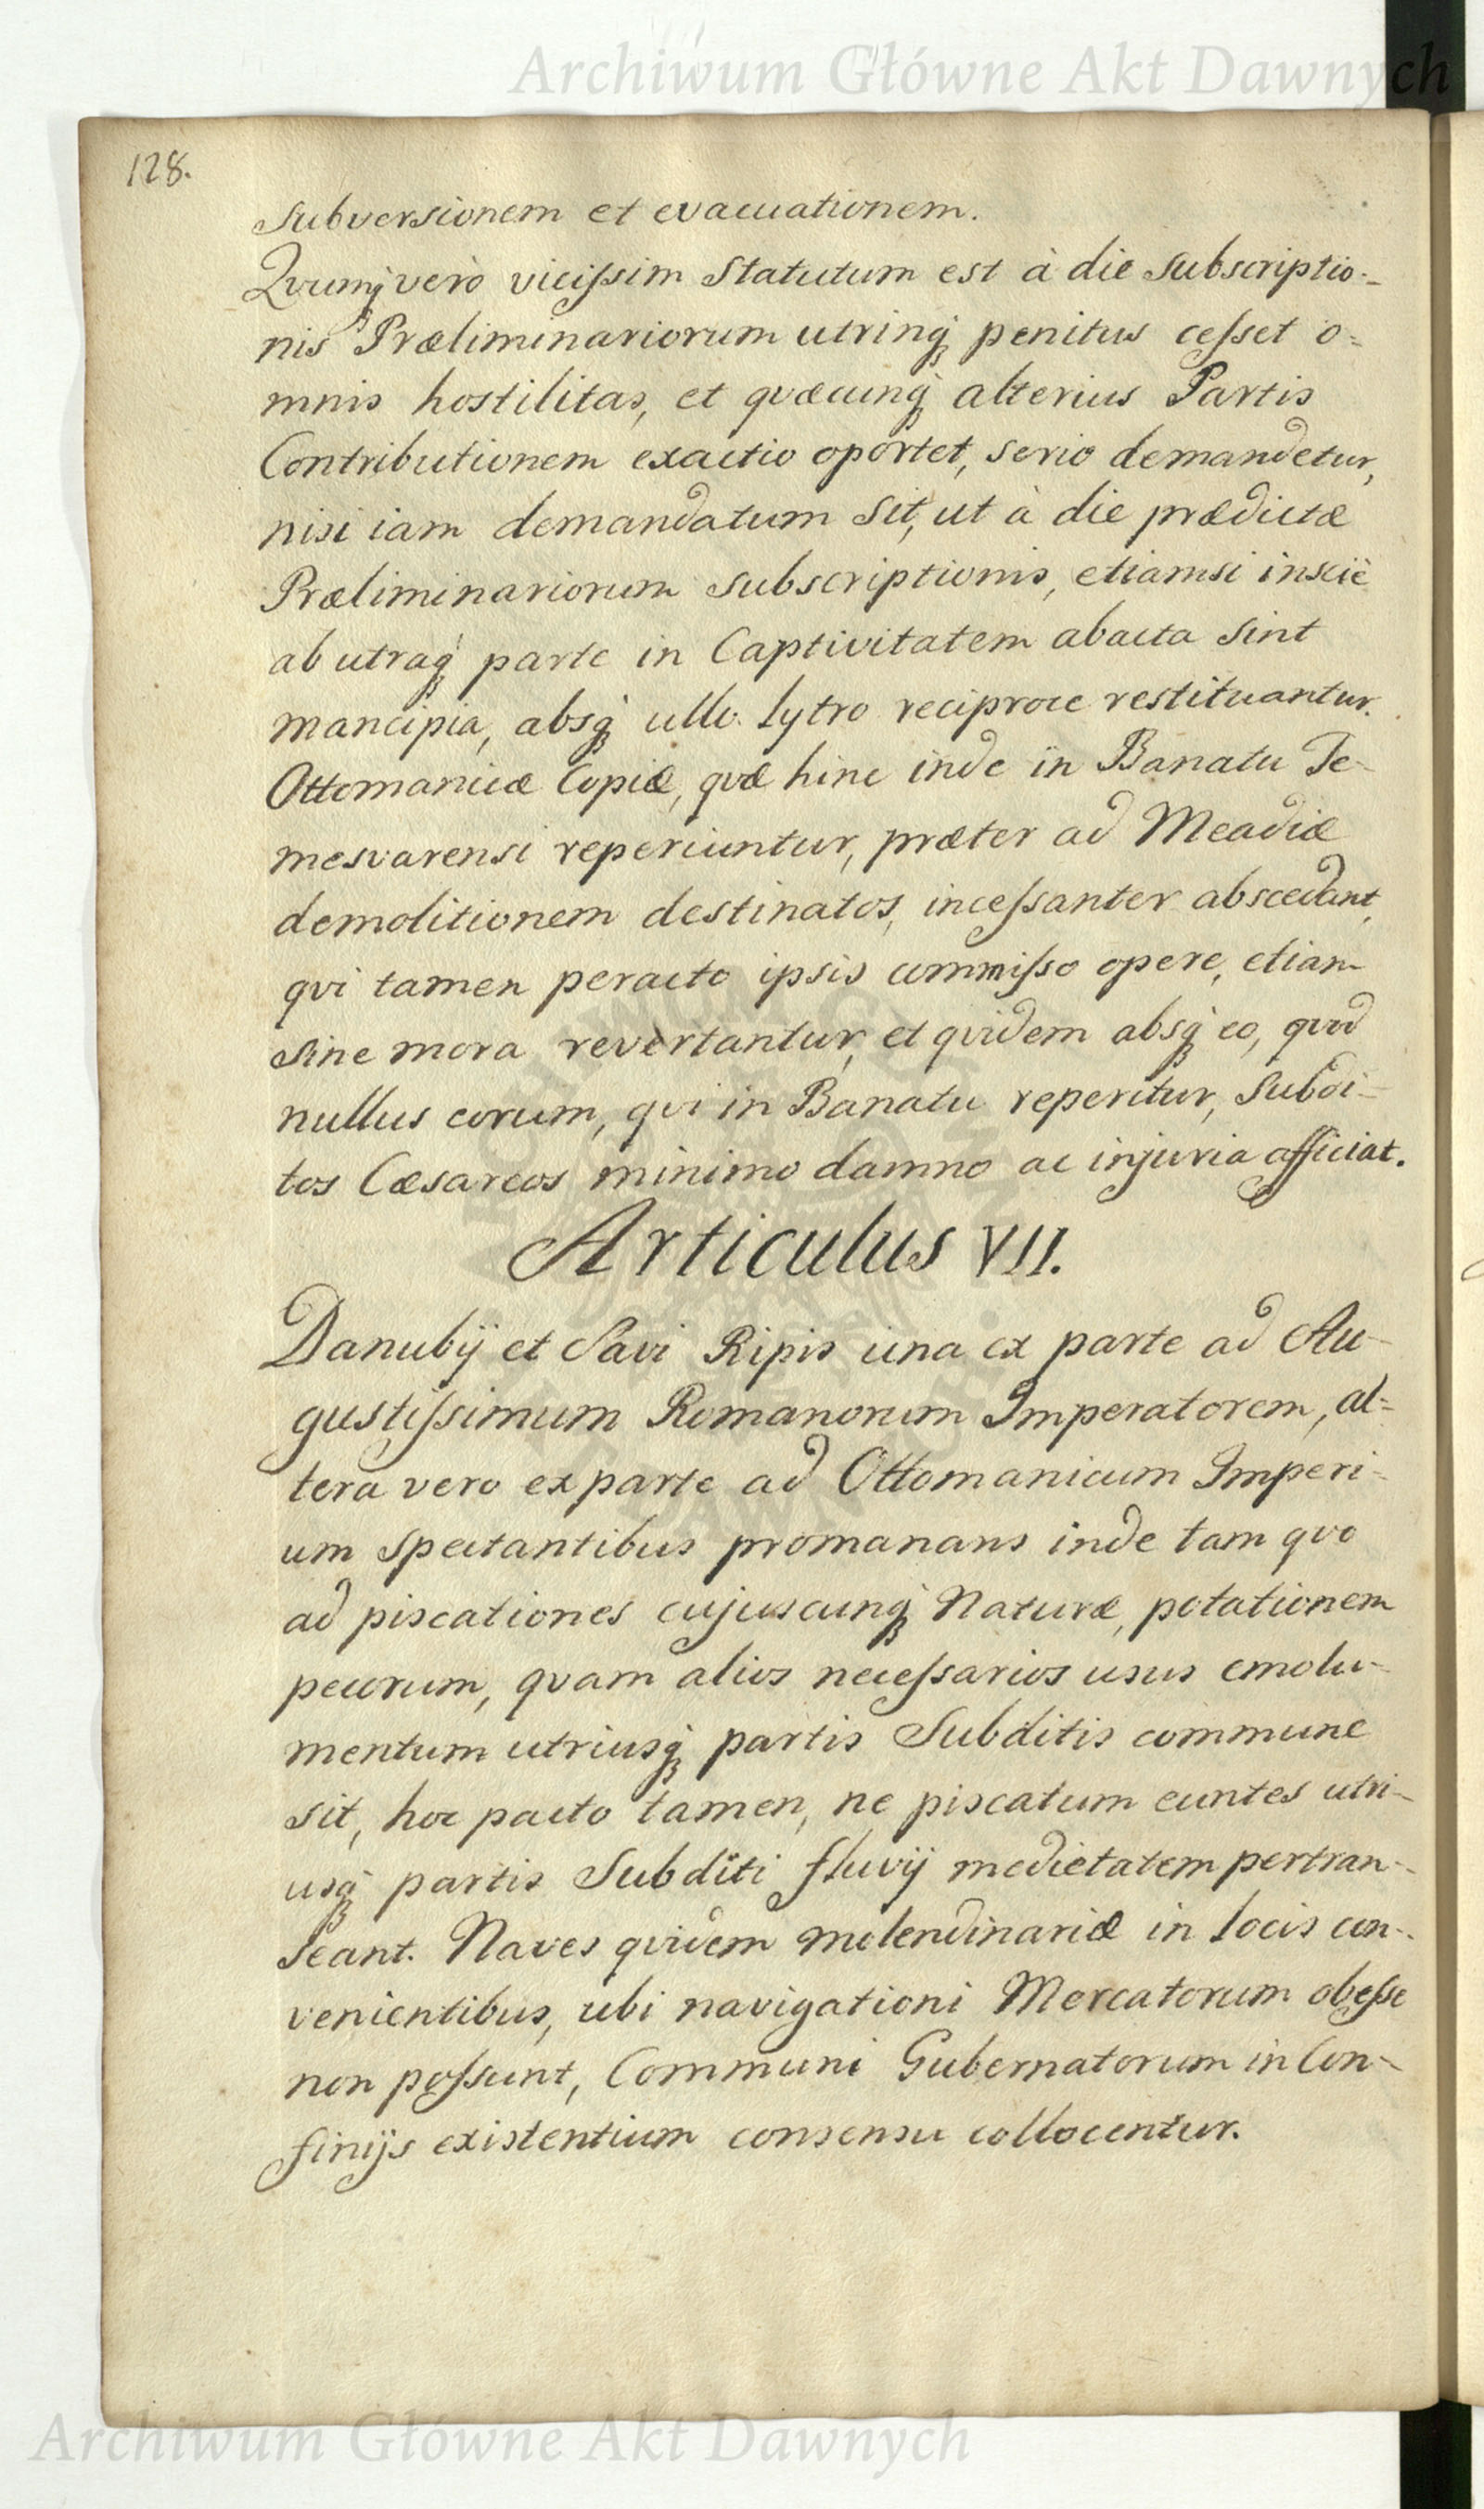 Archiwum Główne Akt Dawnych
128.
subversionem et evacuationem.
Qvumq̨ vero viciſsim Statutum est à die subscriptio-
nis Præliminariorum utrinq̨ penitus ceſset o=
mnis hostilitas, et qvæcunq̨ alterius Partis
Contributionem exactio oportet, serio demandetur,
nisi iam demandatum sit, ut à die prædictæ
Præliminariorum subscriptionis, etiamsi inscië
ab utraq̨ parte in Captivitatem abacta sint
mancipia, absq̨ ullo lytro reciproce restituantur.
Ottomanicæ Copiæ, qvæ hinc inde in Banatu Te-
mesvarensi reperiuntur, præter ad Meadiæ
demolitionem destinatos, inceſsanter abscedant,
qvi tamen peracto ipsis commiſso opere, etiam
sine mora revertantur, et qvidem absq̨ eo, qvod
nullus eorum, qvi in Banatu reperitur, Subdi-
tos Cæsareos minimo damno ac injuria afficiat.
Articulus VII.
Danubÿ et Savi Ripis una ex parte ad Au-
gustiſsimum Romanorum Imperatorem, al=
tera vero ex parte ad Ottomanicum Imperi-
um spectantibus promanans inde tam qvo
ad piscationes cujuscunq̨ Naturæ, potationem
pecorum, qvam alios neceſsarios usus emolu-
mentum utriusq̨ partis Subditis commune
sit, hoc pacto tamen, ne piscatum euntes utri-
usq̨ partis Subditi fluvÿ medietatem pertran-
seant. Naves qvidem molendinariæ in locis con-
venientibus, ubi navigationi Mercatorum obeſse
non poſsunt, Communi Gubernatorum in Con-
finÿs existentium consensu collocentur.
Archiwum Główne Akt Dawnych